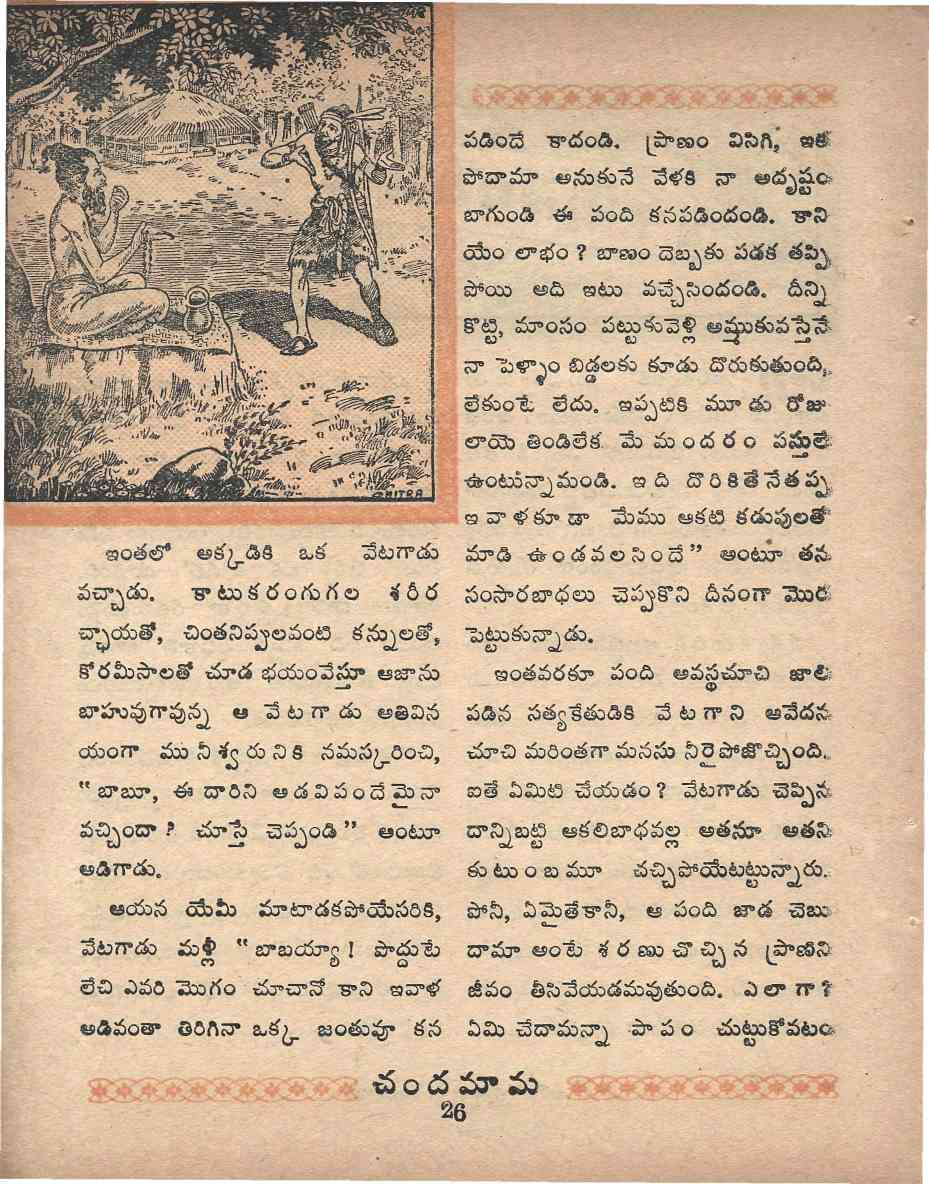 ఇంతలో అక్కడికి ఒక వేటగాడు
వచ్చాడు. కాటుకరంగుగల శరీర
చ్ఛాయతో, చింతనిప్పులవంటి కన్నులతో,
కోరమీసాలతో చూడ భయంవేస్తూ ఆజాను
బాహువుగావున్న ఆ వేటగాడు అతివిన
యంగా మునీశ్వరునికి నమస్కరించి,
“బాబూ, ఈ దారిని అడవిపందేమైనా
వచ్చిందా? చూస్తే చెప్పండి” అంటూ
అడిగాడు.
ఆయన యేమీ మాటాడకపోయేసరికి,
వేటగాడు మళ్లీ “బాబయ్యా! పొద్దుటే
లేచి ఎవరి మొగం చూచానో కాని ఇవాళ
అడివంతా తిరిగినా ఒక్క జంతువూ కన
పడిందే కాదండి. ప్రాణం విసిగి, ఇక
పోదామా అనుకునే వేళకి నా అదృష్టం
బాగుండి ఈ పంది కనపడిందండి. కాని
యేం లాభం? బాణం దెబ్బకు పడక తప్పి
పోయి అది ఇటు వచ్చేసిందండి. దీన్ని
కొట్టి, మాంసం పట్టుకువెళ్లి అమ్ముకువస్తేనే
నా పెళ్ళాం బిడ్డలకు కూడు దొరుకుతుంది,
లేకుంటే లేదు. ఇప్పటికి మూడు రోజు
లాయె తిండిలేక మేమందరం పస్తులే
ఉంటున్నామండి. ఇది దొరికితేనేతప్ప
ఇవాళకూడా మేము ఆకటి కడుపులతో
మాడి ఉండవలసిందే” అంటూ తన
సంసారబాధలు చెప్పుకొని దీనంగా మొర
పెట్టుకున్నాడు.
ఇంతవరకూ పంది అవస్థచూచి జాలి
పడిన సత్యకేతుడికి వేటగాని ఆవేదన
చూచి మరింతగా మనసు నీరైపోజొచ్చింది.
ఐతే ఏమిటి చేయడం? వేటగాడు చెప్పిన
దాన్నిబట్టి ఆకలిబాధవల్ల అతనూ అతని
కుటుంబమూ చచ్చిపోయేటట్టున్నారు.
పోనీ, ఏమైతేకానీ, ఆ పంది జాడ చెబు
దామా అంటే శరణుచొచ్చిన ప్రాణిని
జీవం తీసివేయడమవుతుంది. ఎలాగా?
ఏమి చేదామన్నా పాపం చుట్టుకోవటం
చందమామ
26